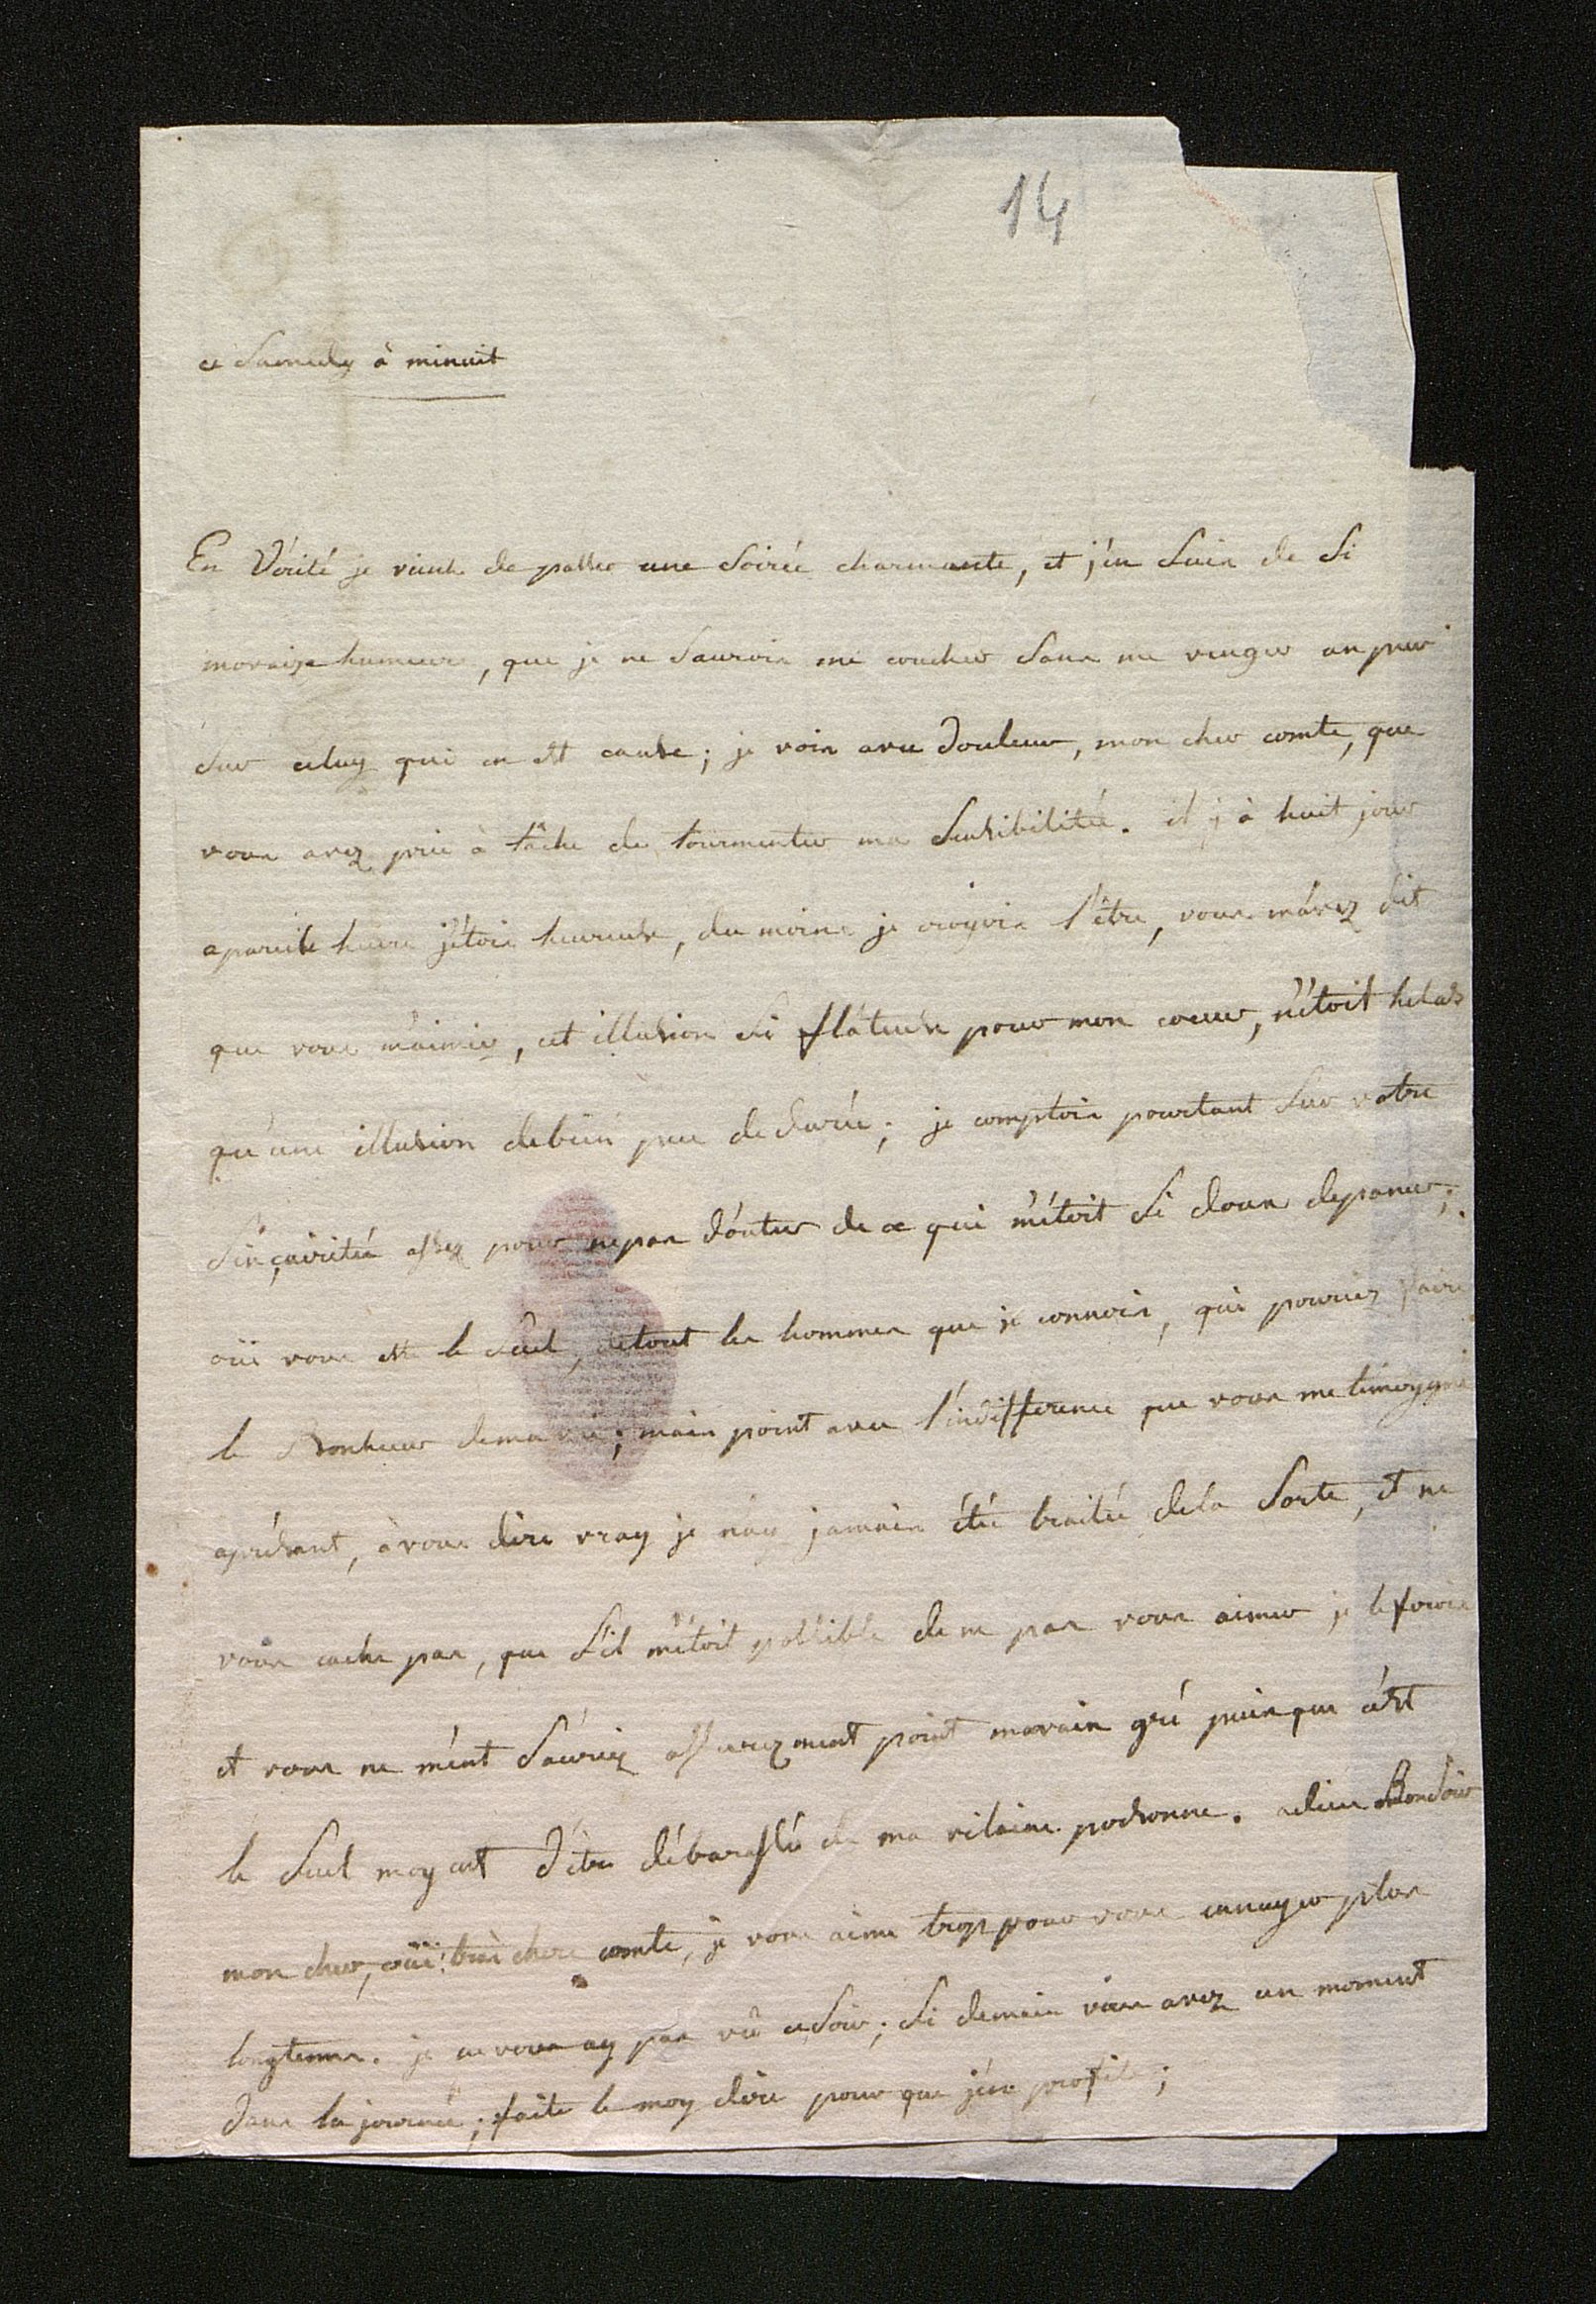 14
ce Samedy à minuit
En Vérité je vient de passer une Soirée charmante, et j'en Suis de Si
movaize humeure, que je ne Saurois me coucher Sans me venger un peu
Sur celuy qui en est cause; je vois avec douleur, mon cher comte, que
vous avez prie à tâche de tourmenter ma Sensibilitée. il j à huit jour
apareile heure j'étois heureuse, du moins je croyois l'être, vous m'avez dit
que vous m'aimiez, cet illusion Si flâteuse pour mon coeur, n'étoit helas
qu'une illusion debien peu de durée; je comptois pourtant Sur votre
Sinçairitée assez pour nepas douter de ce qui m'étoit Si doux depenser;
oüi vous ette le Seul, detout les hommes que je connois, qui pouriez faire
le Bonheur dema vie; mais point avec l'indifference que vous me temoygné
apresant, àvous dire vray je n'ay jamais étée traitée dela Sorte, et ne
vous cache pas, que S'il m'étoit possible de ne pas vous aimer je leferois
et vous ne m'ent Sauriez assurezment point mavais gré puisque c'est
le Seul moyent d'être débarassé de ma vilaine podsonne. adieu Bondoir
mon cher, oüi! trés chere comte, je vous aime trop pour vous ennuyer plus
longtems. je ne vous ay pas vû ceSoir; Si demain vous avez un moment
dans la journée; faite le moy dire pour que j'en profite;